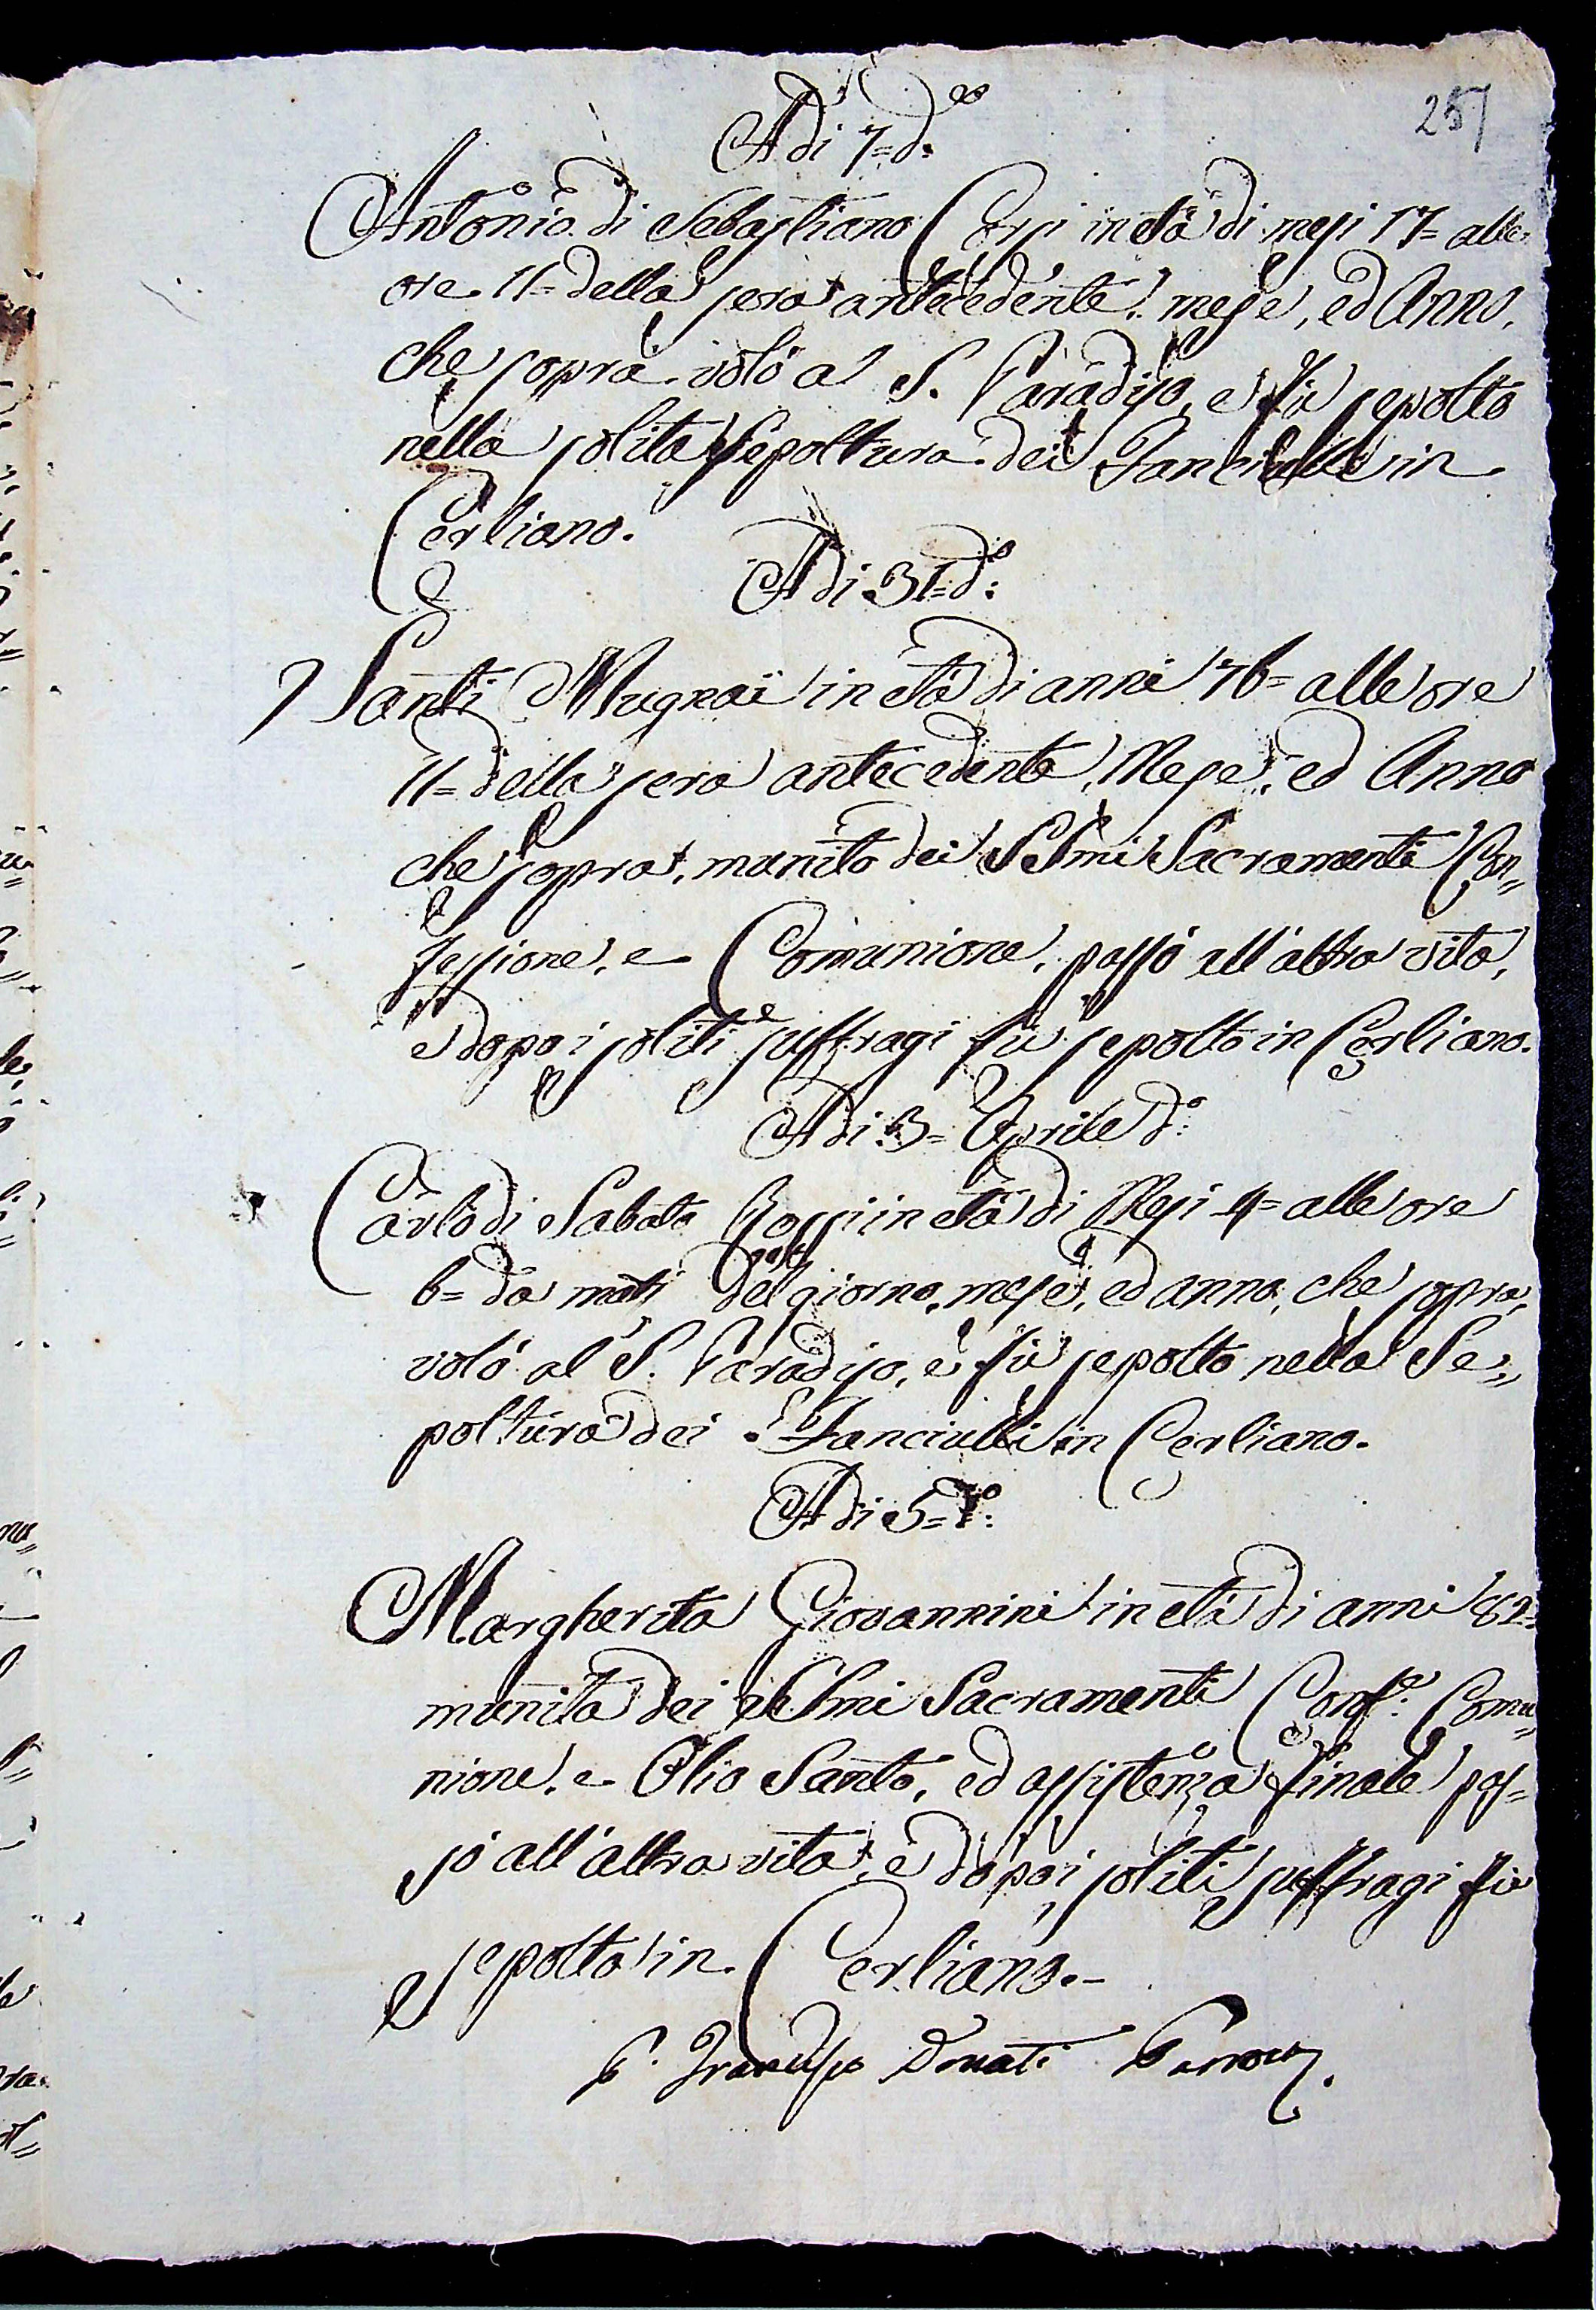 257
Adi 7= d.o
Antonio di Sebastiano Corsi in età di mesi 17= alle
ore 11= della sera antecedente, mese, ed Anno,
che sopra volò al S. Paradiso, e fù sepolto
nella solita Sepoltura dei Fanciulli in
Cerliano.
Adi 31= d.o:
Santi Mugnai in età di anni 76= alle ore
11= della sera antecedente, Mese, ed Anno
che sopra, munito dei SSmi Sacramenti Con„
fessione, e Comunione, passò all'altra vita,
e dopo i soliti suffragi fù sepolto in Cerliano.
Adi 3= Aprile d.o:
Carlo di Sabato Rossi in età di Mesi 4= alle ore
6= da mati del giorno, mese, ed anno, che sopra,
volò al S. Paradiso, e fù sepolto nella Se„
poltura dei Fanciulli in Cerliano.
Adi 5= d.o:
Margherita Giovannini in età di anni 82=
munita dei SSmi Sacramenti Conf.e Comu„
nione, e Olio Santo, ed assistenza finale pas=
sò all'altra vita, e dopo i soliti suffragi fù
sepolta in Cerliano.–
P. Francesco Donati